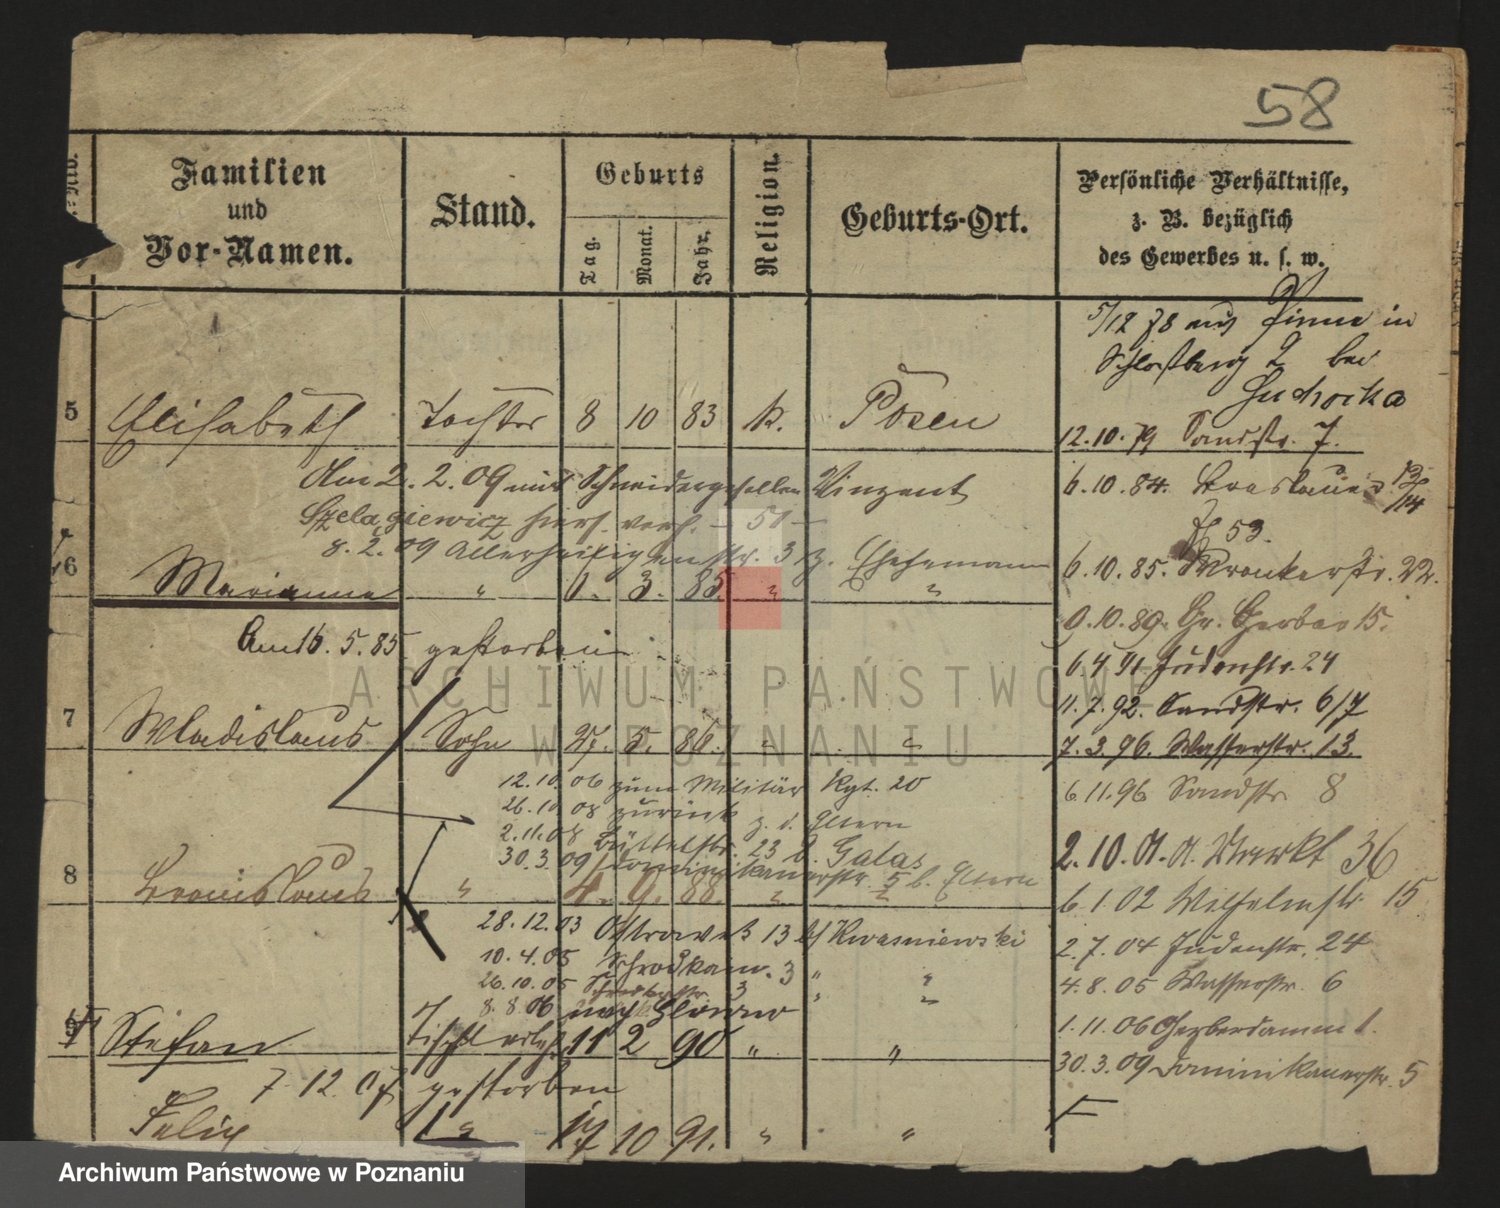 58
Familien
und
Vor-Namen.
Stand.
Geburts
Tag.
Monat.
Jahr.
Religion.
Geburts-Ort.
Persönliche Verhältnisse,
z. B. bezüglich
des Gewerbes u. s. w.
5/12 78 aus Pinne in
Schloßberg 2 bei
12.10.79 Sandstr. 7.
6.10.84. Breslauer 13/14
53.
6.10.85. Wronkerstr. 22.
9.10.89. Gr. Gerber 15.
6 4 91 Judenstr. 24
11.7.92. Sandstr. 6/7
7.3.96. Wasserstr. 13.
6.11.96 Sandstr 8
2.10.01. A. Markt 36
6 1 02 Wilhelmstr 15
2.7.04 Judenstr. 24
4.8.05 Wasserstr. 6
1.11.06 Gerberdamm 1.
30.3.09 Dominikanerstr. 5
5 Elisabeth Tochter 8 10 83 k. Posen
Am 2. 2. 09 mit Schneidergesellen Vinzent
Szelagiewicz hiers. verh. - 51 -
8. 2. 09 Allerheiligenstr. 3 z. Ehemann
6 Marianna " 1. 3. 85. " "
Am 16. 5. 85 gestorben
7 Wladislaus Sohn 27. 5. 86. " "
12.10.06 zum Militär Rgt. 20
26.10.08 zurück z. d. Eltern
2.11.08 Büttelstr. 23 b. Galas
30.3.09 Dominikanerstr. 5 b. Eltern
8 Bronislaus " 4. 9. 88. " "
28.12.03 Ostrowek 13 bei Kwasniewski
10.4.05 Schrodkam. 3 " "
26.10.05 3 " "
8.8.06 nach Glowno
9 Stefan Tischlerlehrl. 11 2 90 " "
7 12 07 gestorben
Felix " 17 10 91. " "
ARCHIWUM PAŃSTWOWE
W POZNANIU
Archiwum Państwowe w Poznaniu